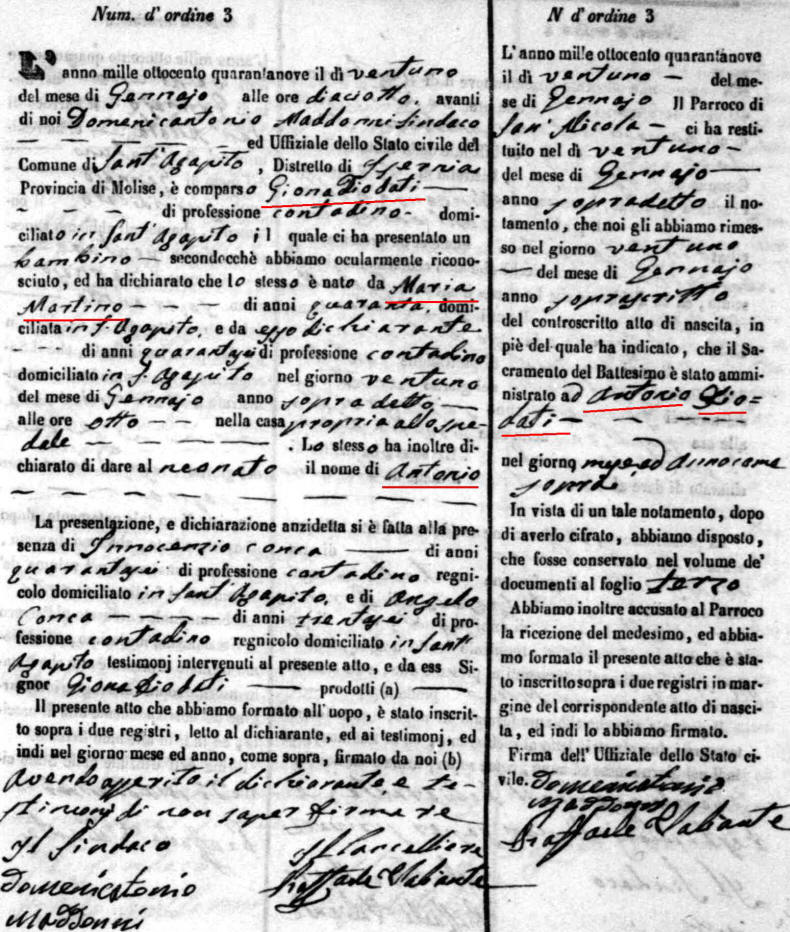 Num. d' ordine 3
L' anno mille ottocento quarantanove il dì ventuno
del mese di Gennajo alle ore diaciotto, avanti
di noi Domenicantonio Maddonni Sindaco
ed Uffiziale dello Stato civile del
Comune di Sant'Agapito, Distretto di Isernia
Provincia di Molise, è comparso Giona Diodati
di professione contadino domi-
ciliato in Sant'Agapito il quale ci ha presentato un
bambino secondocchè abbiamo ocularmente ricono-
sciuto, ed ha dichiarato che lo stesso è nato da Maria
Martino di anni quaranta, domi-
ciliata in S. Agapito, e da esso dichiarante
di anni quarantasei di professione contadino
domiciliato in S. Agapito nel giorno ventuno
del mese di Gennajo anno sopradetto
alle ore otto nella casa propria allo spe-
dale . Lo stesso ha inoltre di-
chiarato di dare al neonato il nome di Antonio
La presentazione, e dichiarazione anzidetta si è fatta alla pre-
senza di Innocenzio Conca di anni
quarantasei di professione contadino regni-
colo domiciliato in Sant'Agapito, e di Angelo
Conca di anni trentasei di pro-
fessione contadino regnicolo domiciliato in Sant'
Agapito testimonj intervenuti al presente atto, e da ess Si-
gnor Giona Diodati prodotti (a)
Il presente atto che abbiamo formato all' uopo, è stato inscrit-
to sopra i due registri, letto al dichiarante, ed ai testimonj, ed
indi nel giorno mese ed anno, come sopra, firmato da noi (b)
Avendo asserito il dichiarante, e te-
stimonj di non saper firmare
Il Sindaco Il Cancelliere
Domenicantonio Raffaele Valiante
Maddonni
N d' ordine 3
L' anno mille ottocento quarantanove
il dì ventuno del me-
se di Gennajo Il Parroco di
San Nicola ci ha resti-
tuito nel dì ventuno
del mese di Gennajo
anno sopradetto il no-
tamento, che noi gli abbiamo rimes-
so nel giorno ventuno
del mese di Gennajo
anno soprascritto
del controscritto atto di nascita, in
piè del quale ha indicato, che il Sa-
cramento del Battesimo è stato ammi-
nistrato ad Antonio Dio=
dati
nel giorno mese ed anno come
sopra
In vista di un tale notamento, dopo
di averlo cifrato, abbiamo disposto,
che fosse conservato nel volume de'
documenti al foglio terzo
Abbiamo inoltre accusato al Parroco
la ricezione del medesimo, ed abbia-
mo formato il presente atto che è sta-
to inscritto sopra i due registri in mar-
gine del corrispondente atto di nasci-
ta, ed indi lo abbiamo firmato.
Firma dell' Uffiziale dello Stato ci-
vile. Domenicantonio
Maddonni
Raffaele Valiante